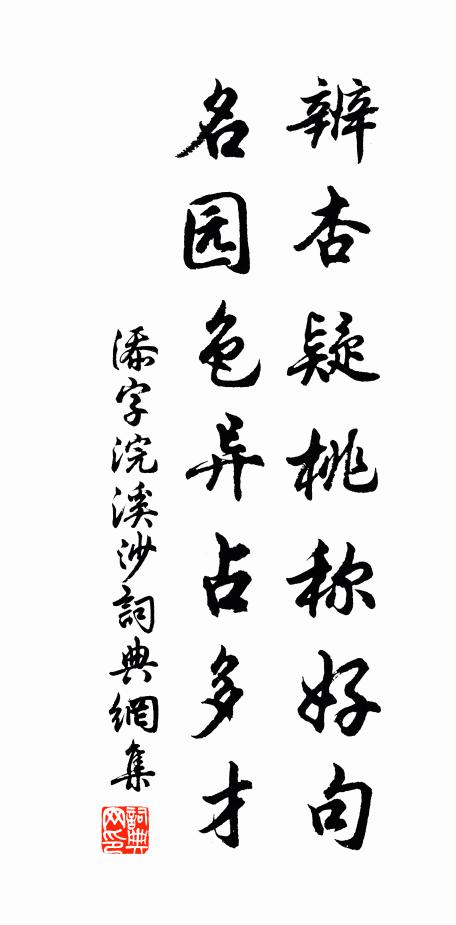 辨杏疑桃称好句
名园色异占多才
添字浣溪沙詞典網集
詞典网印